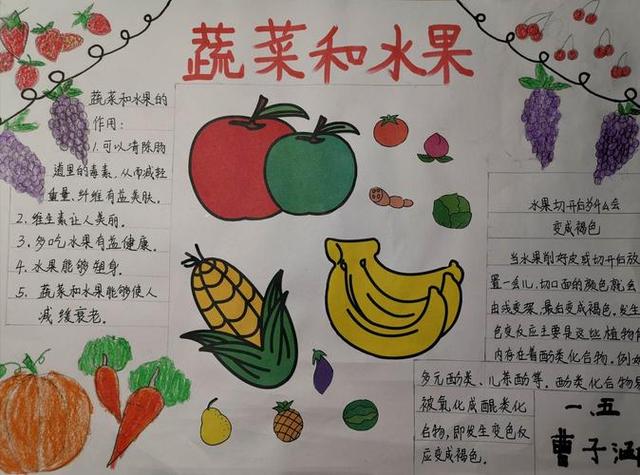 蔬菜和水果
蔬菜和水果的
作用：
1.可以清除肠
道里的毒素，从而减轻
重量，纤维有益美肤。
2、维生素让人美丽。
3、多吃水果有益健康。
4、水果能够塑身。
5、蔬菜和水果能够使人
减缓衰老。
水果切开后为什么会
变成褐色
当水果削好皮或切开后放
置一会儿，切口面的颜色就会
由浅变深，最后变成褐色。发生
色变反应主要是这些植物体
内存在着酚类化合物。例如
多元酚类、儿茶酚等。酚类化合物易
被氧化成醌类化
合物，即发生变色反
应变成褐色。
一、五
曹子涵